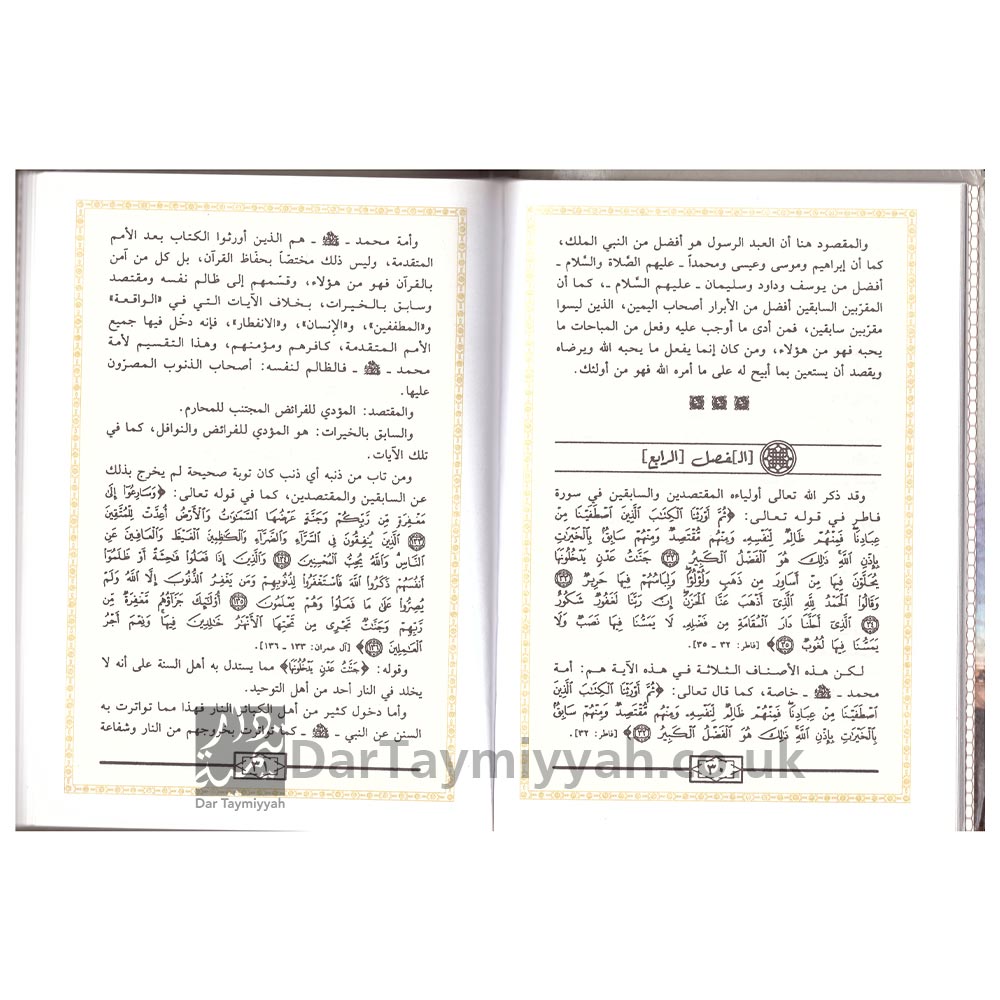 والمقصود هنا أن العبد الرسول هو أفضل من النبي الملك،
كما أن إبراهيم وموسى وعيسى ومحمداً ـ عليهم الصَّلاة والسَّلام ـ
أفضل من يوسف وداود وسليمان ـ عليهم السَّلام ـ، كما أن
المقرّبين السابقين أفضل من الأبرار أصحاب اليمين، الذين ليسوا
مقرّبين سابقين، فمن أدى ما أوجب عليه وفعل من المباحات ما
يحبه فهو من هؤلاء، ومن كان إنما يفعل ما يحبه الله ويرضاه
ويقصد أن يستعين بما أبيح له على ما أمره الله فهو من أولئك.
[الـ]فصل [الرابع]
وقد ذكر الله تعالى أولياءه المقتصدين والسابقين في سورة
فاطر في قوله تعالى: ﴿ثُمَّ أَوْرَثْنَا ٱلْكِتَٰبَ ٱلَّذِينَ ٱصْطَفَيْنَا مِنْ
عِبَادِنَا فَمِنْهُمْ ظَالِمٌ لِّنَفْسِهِۦ وَمِنْهُم مُّقْتَصِدٌ وَمِنْهُمْ سَابِقٌۢ بِٱلْخَيْرَٰتِ
بِإِذْنِ ٱللَّهِ ذَٰلِكَ هُوَ ٱلْفَضْلُ ٱلْكَبِيرُ ٣٢ جَنَّٰتُ عَدْنٍ يَدْخُلُونَهَا
يُحَلَّوْنَ فِيهَا مِنْ أَسَاوِرَ مِن ذَهَبٍ وَلُؤْلُؤًا وَلِبَاسُهُمْ فِيهَا حَرِيرٌ ٣٣
وَقَالُوا۟ ٱلْحَمْدُ لِلَّهِ ٱلَّذِىٓ أَذْهَبَ عَنَّا ٱلْحَزَنَ إِنَّ رَبَّنَا لَغَفُورٌ شَكُورٌ
٣٤ ٱلَّذِىٓ أَحَلَّنَا دَارَ ٱلْمُقَامَةِ مِن فَضْلِهِۦ لَا يَمَسُّنَا فِيهَا نَصَبٌ وَلَا
يَمَسُّنَا فِيهَا لُغُوبٌ ٣٥﴾ [فاطر: ٣٢ ـ ٣٥].
لكن هذه الأصناف الثلاثة في هذه الآية هم: أمة
محمد ـ ﷺ ـ خاصة، كما قال تعالى: ﴿ثُمَّ أَوْرَثْنَا ٱلْكِتَٰبَ ٱلَّذِينَ
ٱصْطَفَيْنَا مِنْ عِبَادِنَا فَمِنْهُمْ ظَالِمٌ لِّنَفْسِهِۦ وَمِنْهُم مُّقْتَصِدٌ وَمِنْهُمْ سَابِقٌۢ
بِٱلْخَيْرَٰتِ بِإِذْنِ ٱللَّهِ ذَٰلِكَ هُوَ ٱلْفَضْلُ ٱلْكَبِيرُ ٣٢﴾ [فاطر: ٣٢].
٣٠
وأمة محمد ـ ﷺ ـ هم الذين أورثوا الكتاب بعد الأمم
المتقدمة، وليس ذلك مختصّاً بحفّاظ القرآن، بل كل من آمن
بالقرآن فهو من هؤلاء، وقسّمهم إلى ظالم نفسه ومقتصد
وسابق بالخيرات، بخلاف الآيات التي في «الواقعة»
و«المطففين»، و«الإنسان»، و«الانفطار»، فإنه دخّل فيها جميع
الأمم المتقدمة، كافرهم ومؤمنهم، وهذا التقسيم لأمة
محمد ـ ﷺ ـ فالظالم لنفسه: أصحاب الذنوب المصرّون
عليها.
والمقتصد: المؤدي للفرائض المجتنب للمحارم.
والسابق بالخيرات: هو المؤدي للفرائض والنوافل، كما في
تلك الآيات.
ومن تاب من ذنبه أي ذنب كان توبة صحيحة لم يخرج بذلك
عن السابقين والمقتصدين، كما في قوله تعالى: ﴿وَسَارِعُوٓا۟ إِلَىٰ
مَغْفِرَةٍ مِّن رَّبِّكُمْ وَجَنَّةٍ عَرْضُهَا ٱلسَّمَٰوَٰتُ وَٱلْأَرْضُ أُعِدَّتْ لِلْمُتَّقِينَ
١٣٣ ٱلَّذِينَ يُنفِقُونَ فِى ٱلسَّرَّآءِ وَٱلضَّرَّآءِ وَٱلْكَٰظِمِينَ ٱلْغَيْظَ وَٱلْعَافِينَ عَنِ
ٱلنَّاسِ وَٱللَّهُ يُحِبُّ ٱلْمُحْسِنِينَ ١٣٤ وَٱلَّذِينَ إِذَا فَعَلُوا۟ فَٰحِشَةً أَوْ ظَلَمُوٓا۟
أَنفُسَهُمْ ذَكَرُوا۟ ٱللَّهَ فَٱسْتَغْفَرُوا۟ لِذُنُوبِهِمْ وَمَن يَغْفِرُ ٱلذُّنُوبَ إِلَّا ٱللَّهُ وَلَمْ
يُصِرُّوا۟ عَلَىٰ مَا فَعَلُوا۟ وَهُمْ يَعْلَمُونَ ١٣٥ أُو۟لَٰٓئِكَ جَزَآؤُهُم مَّغْفِرَةٌ مِّن
رَّبِّهِمْ وَجَنَّٰتٌ تَجْرِى مِن تَحْتِهَا ٱلْأَنْهَٰرُ خَٰلِدِينَ فِيهَا وَنِعْمَ أَجْرُ
ٱلْعَٰمِلِينَ ١٣٦﴾ [آل عمران: ١٣٣ ـ ١٣٦].
وقوله: ﴿جَنَّٰتُ عَدْنٍ يَدْخُلُونَهَا﴾ مما يستدل به أهل السنة على أنه لا
يخلد في النار أحد من أهل التوحيد.
وأما دخول كثير من أهل الكبائر النار فهذا مما تواترت به
السنن عن النبي ـ ﷺ ـ كما تواترت بخروجهم من النار وشفاعة
٣١
DarTaymiyyah.co.uk
Dar Taymiyyah